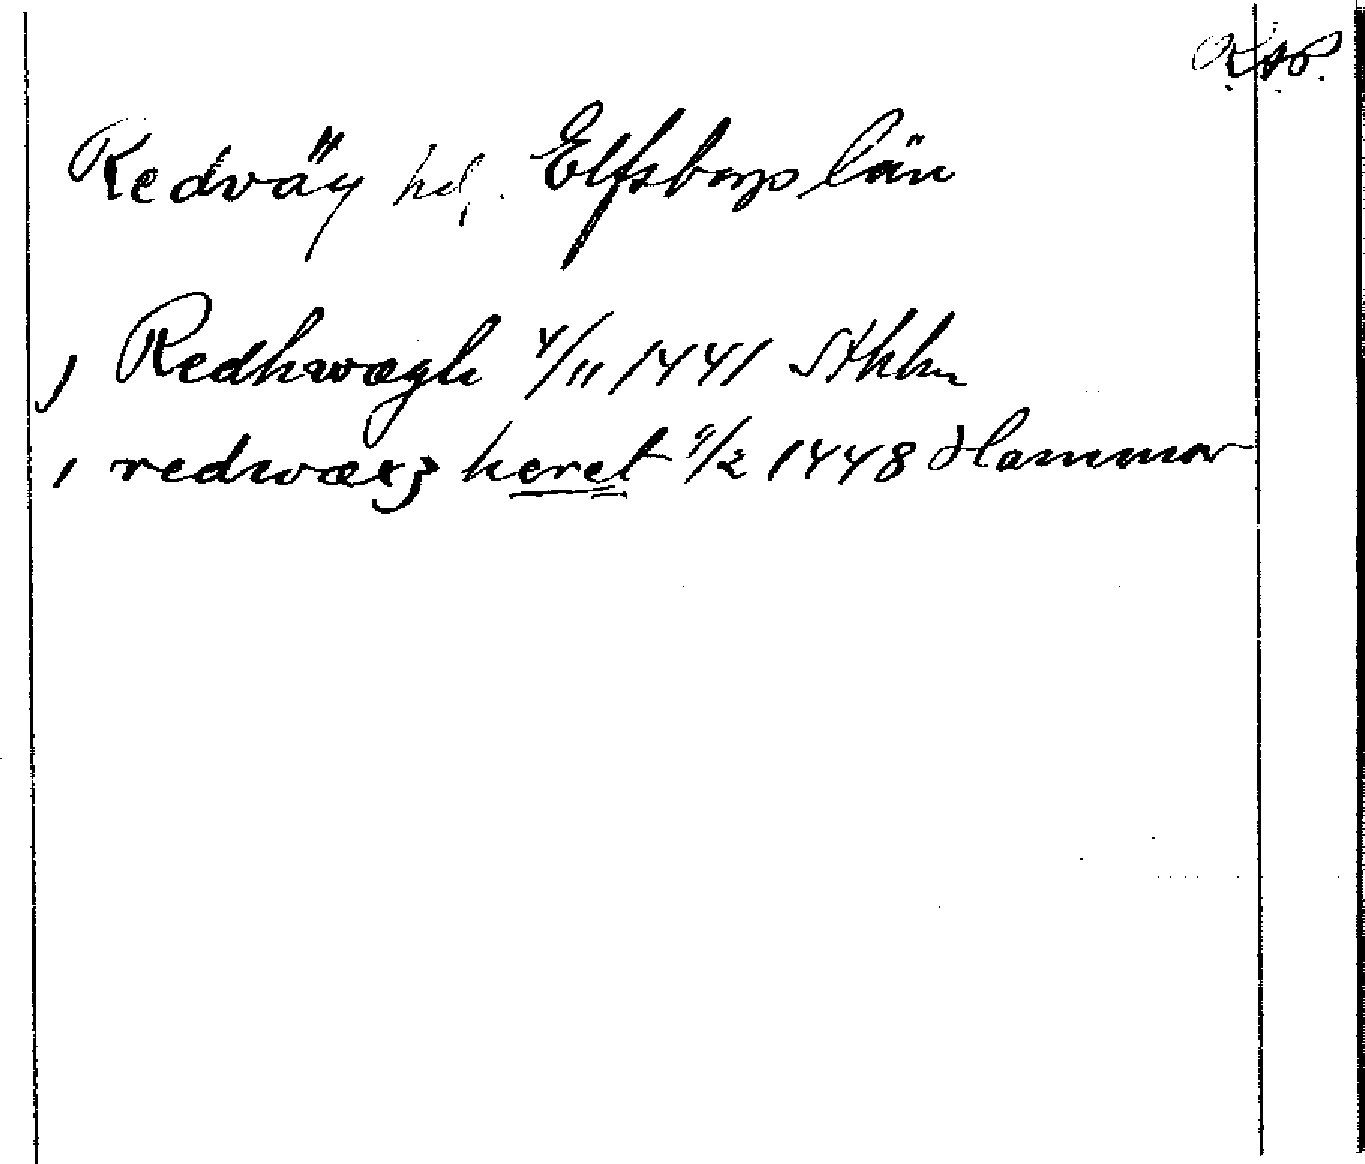 RAP.
Redväg hd. Elfsborgs län
, Redhwægh 4/11 1441 Sthlm
, redwæxȝ heret 9/2 1448 Hammar